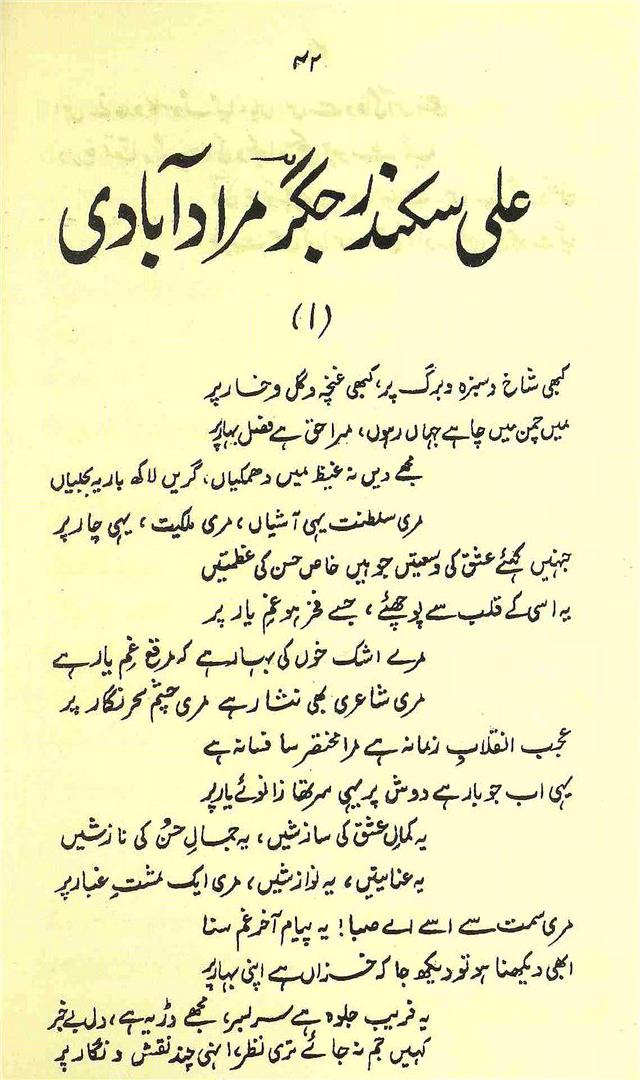 ۴۲
علی سکندر جگر مراد آبادی
(۱)
کبھی شاخ و سبزہ و برگ پر، کبھی غنچہ و گل و خار پر
میں چمن میں چاہے جہاں رہوں، مرا حق ہے فصل بہار پر
مجھے دیں نہ غیظ میں دھمکیاں، گریں لاکھ بار یہ بجلیاں
مری سلطنت یہی آشیاں، مری ملکیت، یہی چار پر
جنہیں کہئے عشق کی وسعتیں جو ہیں خاص حسن کی عظمتیں
یہ اسی کے قلب سے پوچھئے، جسے فخر ہو غمِ یار پر
مرے اشک خوں کی بہار ہے کہ مرقع غمِ یار ہے
مری شاعری بھی نثار ہے مری چشم سحر نگار پر
عجب انقلابِ زمانہ ہے مرا مختصر سا فسانہ ہے
یہی اب جو بار ہے دوش پر یہی سر تھا زانوئے یار پر
یہ کمالِ عشق کی سازشیں، یہ جمالِ حُسن کی نازشیں
یہ عنایتیں، یہ نوازشیں، مری ایک مشتِ غبار پر
مری سمت سے اسے اے صبا! یہ پیام آخر غم سنا
ابھی دیکھنا ہو تو دیکھ جا کہ خزاں ہے اپنی بہار پر
یہ فریب جلوہ ہے سر بسر، مجھے ڈر یہ ہے، دل بے خبر
کہیں جم نہ جائے تری نظر، انہی چند نقش و نگار پر